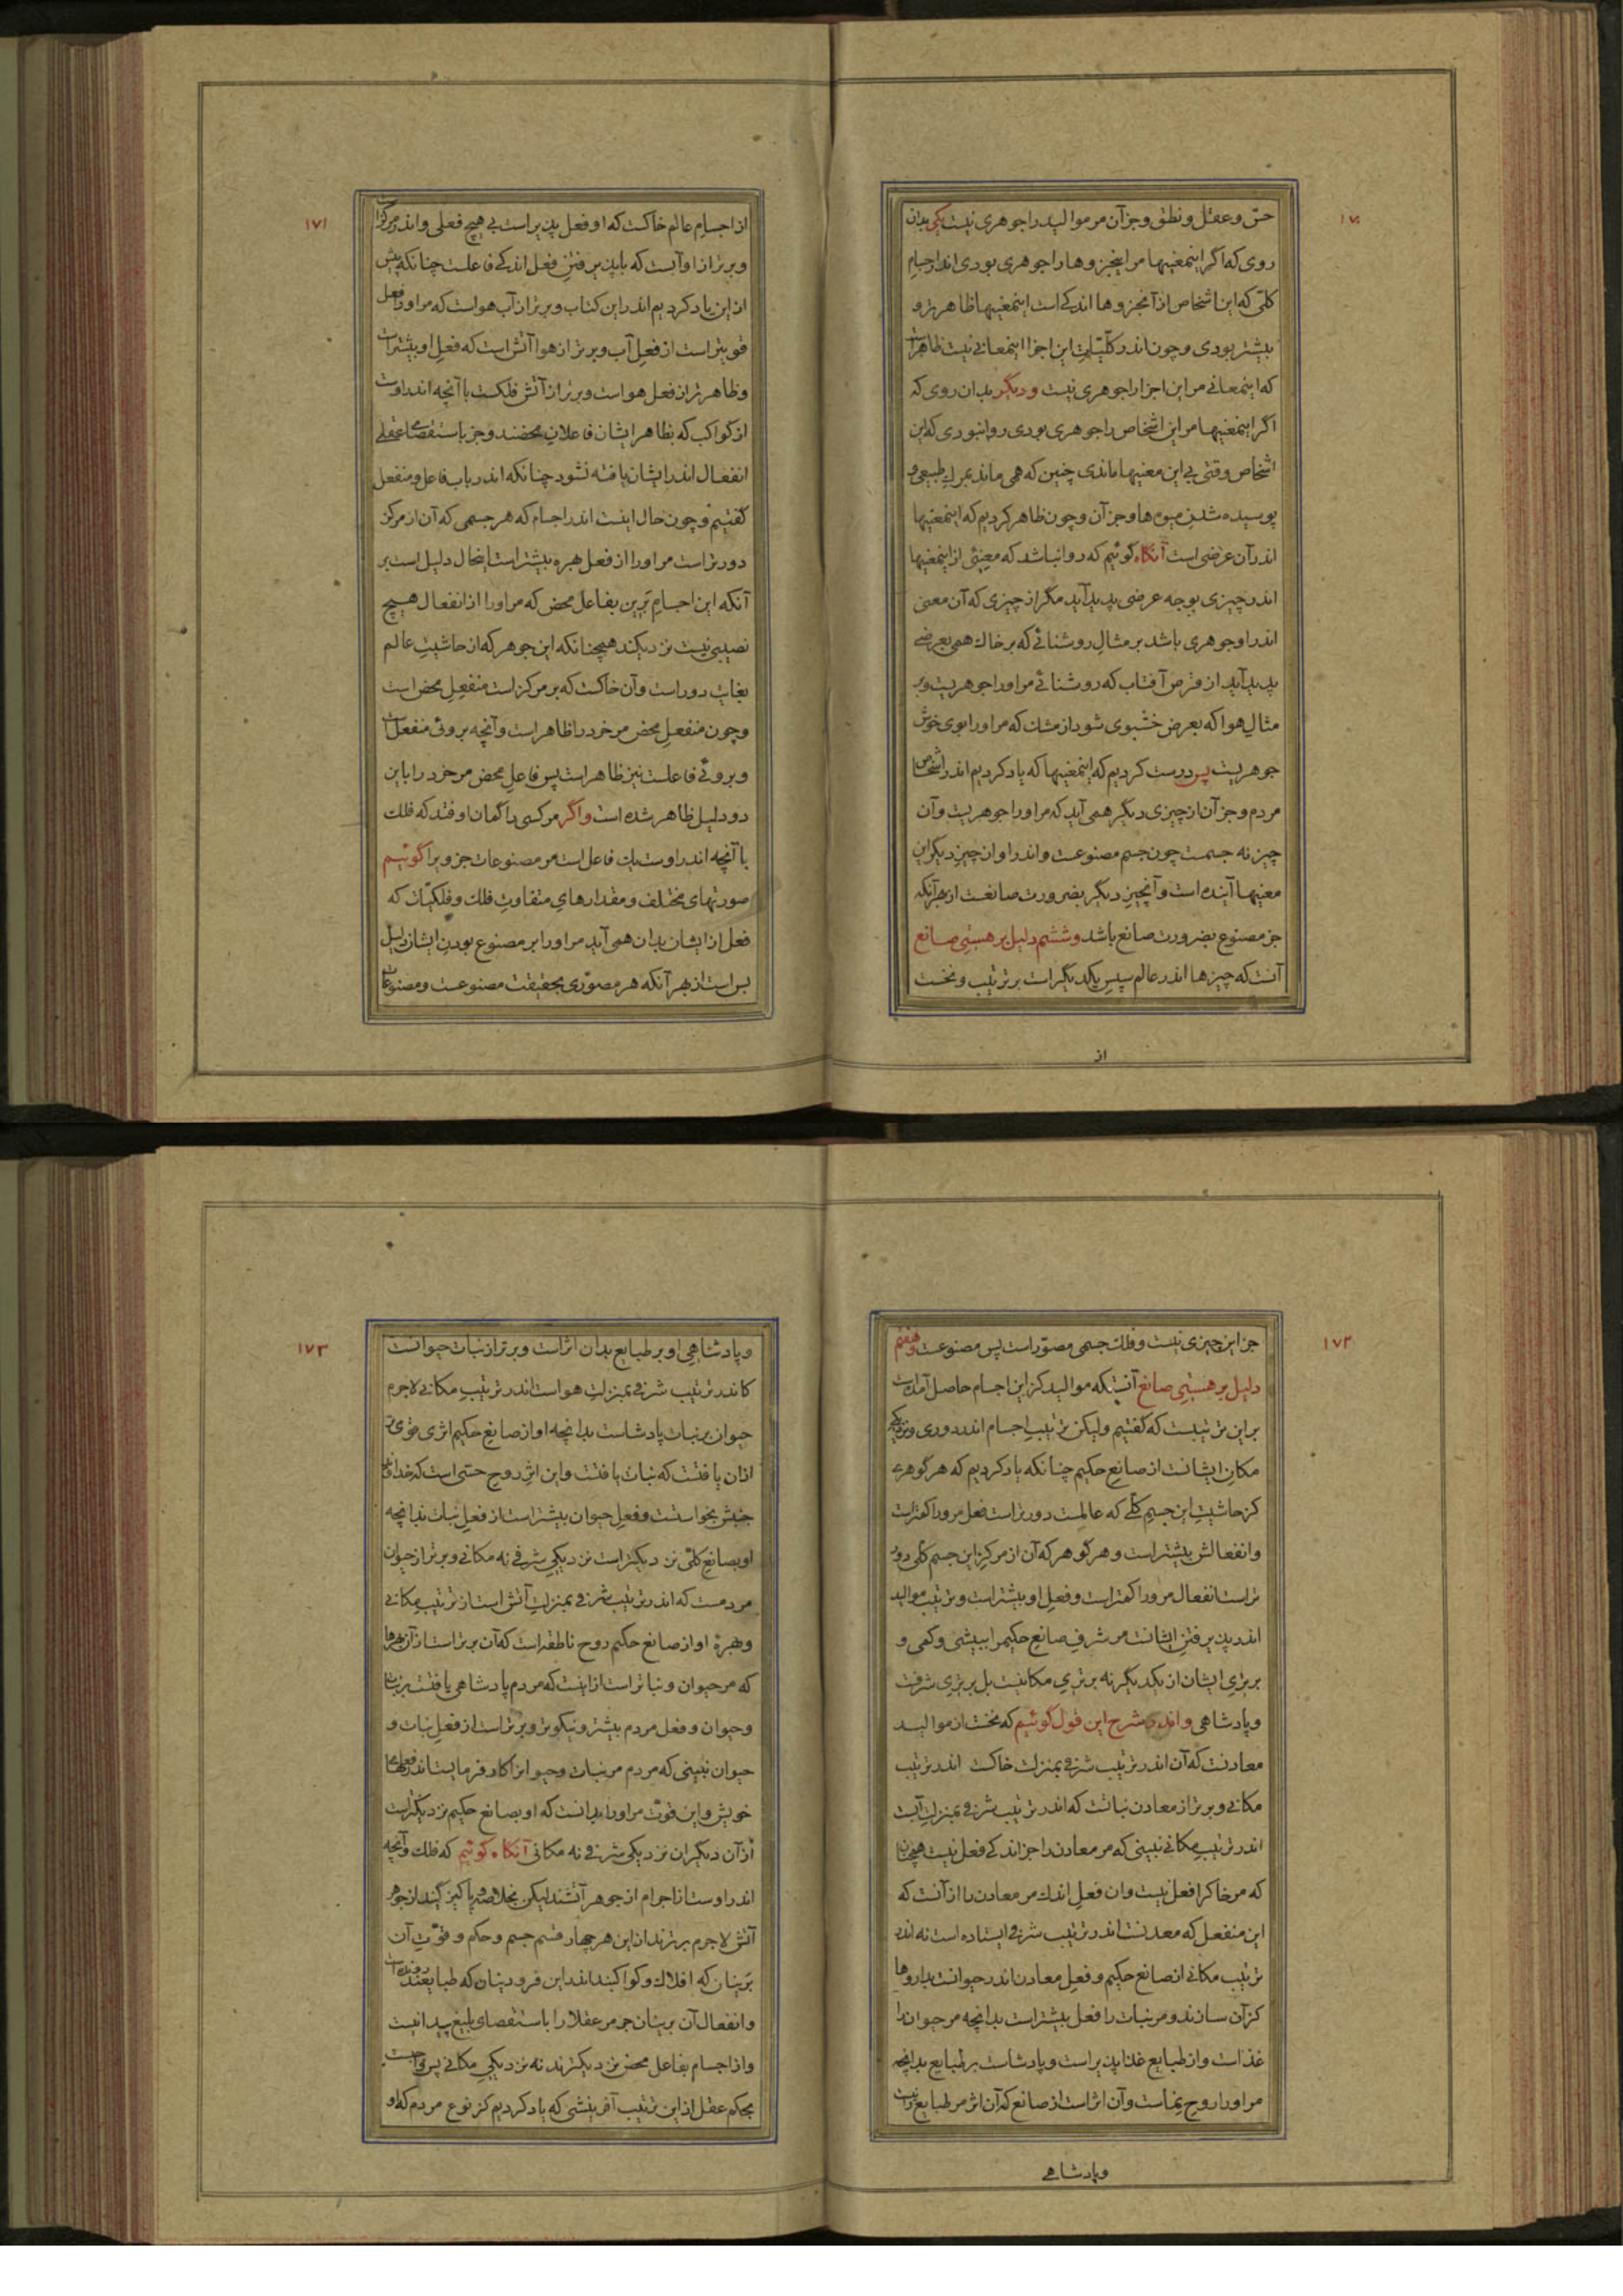 ۱۷۰
حسّ و عقل و نطق و جز آن مر موالید را جوهری نیست یکی بدان
روی که اگر اینمعنیها مر اینجزوها را جوهری بودی اندر اجسام
کلّی که این اشخاص از آنجزوها اندکی است اینمعنیها ظاهرتر و
بیشتر بودی و چون اندر کلّیّات این اجزا اینمعانی نیست ظاهر است
که اینمعانی مر این اجزا را جوهری نیست و دیگر بدان روی که
اگر اینمعنیها مر این اشخاص را جوهری بودی روا نبودی که این
اشخاص وقتی بی این معنیها ماندی چنین که همی ماند بمرگ طبیعی و
پوسیده شدن میوه‌ها و جز آن و چون ظاهر کردیم که اینمعنیها
اندر آن عرضی است آنگاه گوئیم که روا نباشد که معنیئی از اینمعنیها
اندر چیزی بوجه عرضی پدید آید مگر از چیزی که آن معنی
اندر او جوهری باشد بر مثال روشنائی که بر خاک همی بعرضی
پدید آید از قرص آفتاب که روشنائی مر او را جوهریست و بر
مثال هوا که بعرض خشبوی شود از مشک که مر او را بوی خوش
جوهریست پس درست کردیم که اینمعنیها که یاد کردیم اندر اشخاص
مردم و جز آن از چیزی دیگر همی آید که مر او را جوهریست و آن
چیز نه جسمست چون جسم مصنوعست و اندر او از چیز دیگر این
معنیها آینده است و آنچیز دیگر بضرورت صانعست از بهر آنکه
جز مصنوع بضرورت صانع باشد و ششم دلیل بر هستی صانع
آنست که چیزها اندر عالم سپس یکدیگر است بر ترتیب و نخست
از
۱۷۱
از اجسام عالم خاکست که او فعل پذیر است بی هیچ فعلی و اندر مرکز است
و برتر از او آبست که با پذیرفتن فعل اندکی فاعلست چنانکه پیش
از این یاد کردیم اندر این کتاب و برتر از آب هواست که مر او را فعل
قویتر است از فعل آب و برتر از هوا آتش است که فعل او بیشتر است
و ظاهرتر از فعل هواست و برتر از آتش فلکست با آنچه اندر اوست
از کواکب که بظاهر ایشان فاعلان محضند و جز باستقصای عقلی
انفعال اندر ایشان یافته نشود چنانکه اندر باب فاعل و منفعل
گفتیم و چون حال اینست اندر اجسام که هر جسمی که آن از مرکز
دورتر است مر او را از فعل بهره بیشتر است اینحال دلیل است بر
آنکه این اجسام برین بفاعل محض که مر او را از انفعال هیچ
نصیبی نیست نزدیکند همچنانکه این جوهر که از حاشیت عالم
بغایت دور است و آن خاکست که بر مرکز است منفعل محض است
و چون منفعل محض مر خرد را ظاهر است و آنچه بروئی منفعلست
و بروئی فاعلست نیز ظاهر است پس فاعل محض مر خرد را باین
دو دلیل ظاهر شده است و اگر مر کسی را گمان اوفتد که فلک
با آنچه اندر اوست یک فاعل است مر مصنوعات جزوی را گوئیم
صورتهای مختلف و مقدارهای متفاوت فلک و فلکیّات که
فعل از ایشان بدان همی آید مر او را بر مصنوع بودن ایشان دلیل
بس است از بهر آنکه هر مصوّری بحقیقت مصنوعست و مصنوعات
۱۷۲
جز این چیزی نیست و فلک جسمی مصوّر است پس مصنوعست و هفتم
دلیل بر هستی صانع آنستکه موالید کز این اجسام حاصل آمده است
بر این ترتیبست که گفتیم ولیکن ترتیب اجسام اندر دوری و نزدیکی
مکان ایشانست از صانع حکیم چنانکه یاد کردیم که هر گوهری
کز حاشیت این جسم کلّی که عالمست دورتر است فعل مرورا کمتر است
و انفعالش بیشتر است و هر گوهر که آن از مرکز این جسم کلی دور
تر است انفعال مرورا کمتر است و فعل او بیشتر است و ترتیب موالید
اندر پذیرفتن ایشانست مر شرف صانع حکیم را ببیشی و کمی و
برتری ایشان از یکدیگر نه برتری مکانیست بل برتری شرفست
و پادشاهی و اندر شرح این قول گوئیم که نخست از موالید
معادنست که آن اندر ترتیب شرفی بمنزلت خاکست اندر ترتیب
مکانی و برتر از معادن نباتست که اندر ترتیب شرفی بمنزلت آبست
اندر ترتیب مکانی نبینی که مر معادن را جز اندکی فعل نیست همچنان
که مر خاکرا فعل نیست و آن فعل اندک مر معادن را از آنست که
این منفعل که معدنست اندر ترتیب شرفی ایستاده است نه اندر
ترتیب مکانی از صانع حکیم و فعل معادن اندر حیوانست بداروها
کز آن سازند و مر نبات را فعل بیشتر است بدانچه مر حیوان را
غذاست و از طبایع غذا پذیر است و پادشاست بر طبایع بدانچه
مر او را روح نماست و آن اثر است از صانع که آن اثر مر طبایع را نیست
و پادشاهی
۱۷۳
و پادشاهی او بر طبایع بدان اثر است و برتر از نبات حیوانست
کاندر ترتیب شرفی بمنزلت هواست اندر ترتیب مکانی لاجرم
حیوان بر نبات پادشاست بدانچه او از صانع حکیم اثری قوی‌تر
از آن یافتست که نبات یافتست و این اثر روح حسّی است که خداوند
جنبش بخواستست و فعل حیوان بیشتر است از فعل نبات بدانچه
او بصانع کلّی نزدیکتر است نزدیکی شرفی نه مکانی و برتر از حیوان
مردمست که اندر ترتیب شرفی بمنزلت آتش است از ترتیب مکانی
و بهرۀ او از صانع حکیم روح ناطقه است که آن برتر است از آن بهره‌ها
که مر حیوان و نباتراست از اینست که مردم پادشاهی یافتست بر نبات
و حیوان و فعل مردم بیشتر و نیکوتر و برتر است از فعل نبات و
حیوان نبینی که مردم مر نبات و حیوانرا کار فرمایست اندر فعلهای
خویش و این قوّت مر او را بدانست که او بصانع حکیم نزدیکتر است
از آن دیگران نزدیکی شرفی نه مکانی آنگاه گوئیم که فلک و آنچه
اندر اوست از اجرام از جوهر آتشند لیکن بخلاصه و پاکیزگیند از جوهر
آتش لاجرم برترند از این هر چهار قسم جسم و حکم و قوّت آن
برینان که افلاک و کواکبند اندر این فرودینان که طبایعند رونده است
و انفعال آن برینان جز مر عقلا را باستقصای بلیغ پیدا نیست
و از اجسام بفاعل محض نزدیکترند نه نزدیکی مکانی پس واجبست
بحکم عقل از این ترتیب آفرینشی که یاد کردیم کز نوع مردم که او